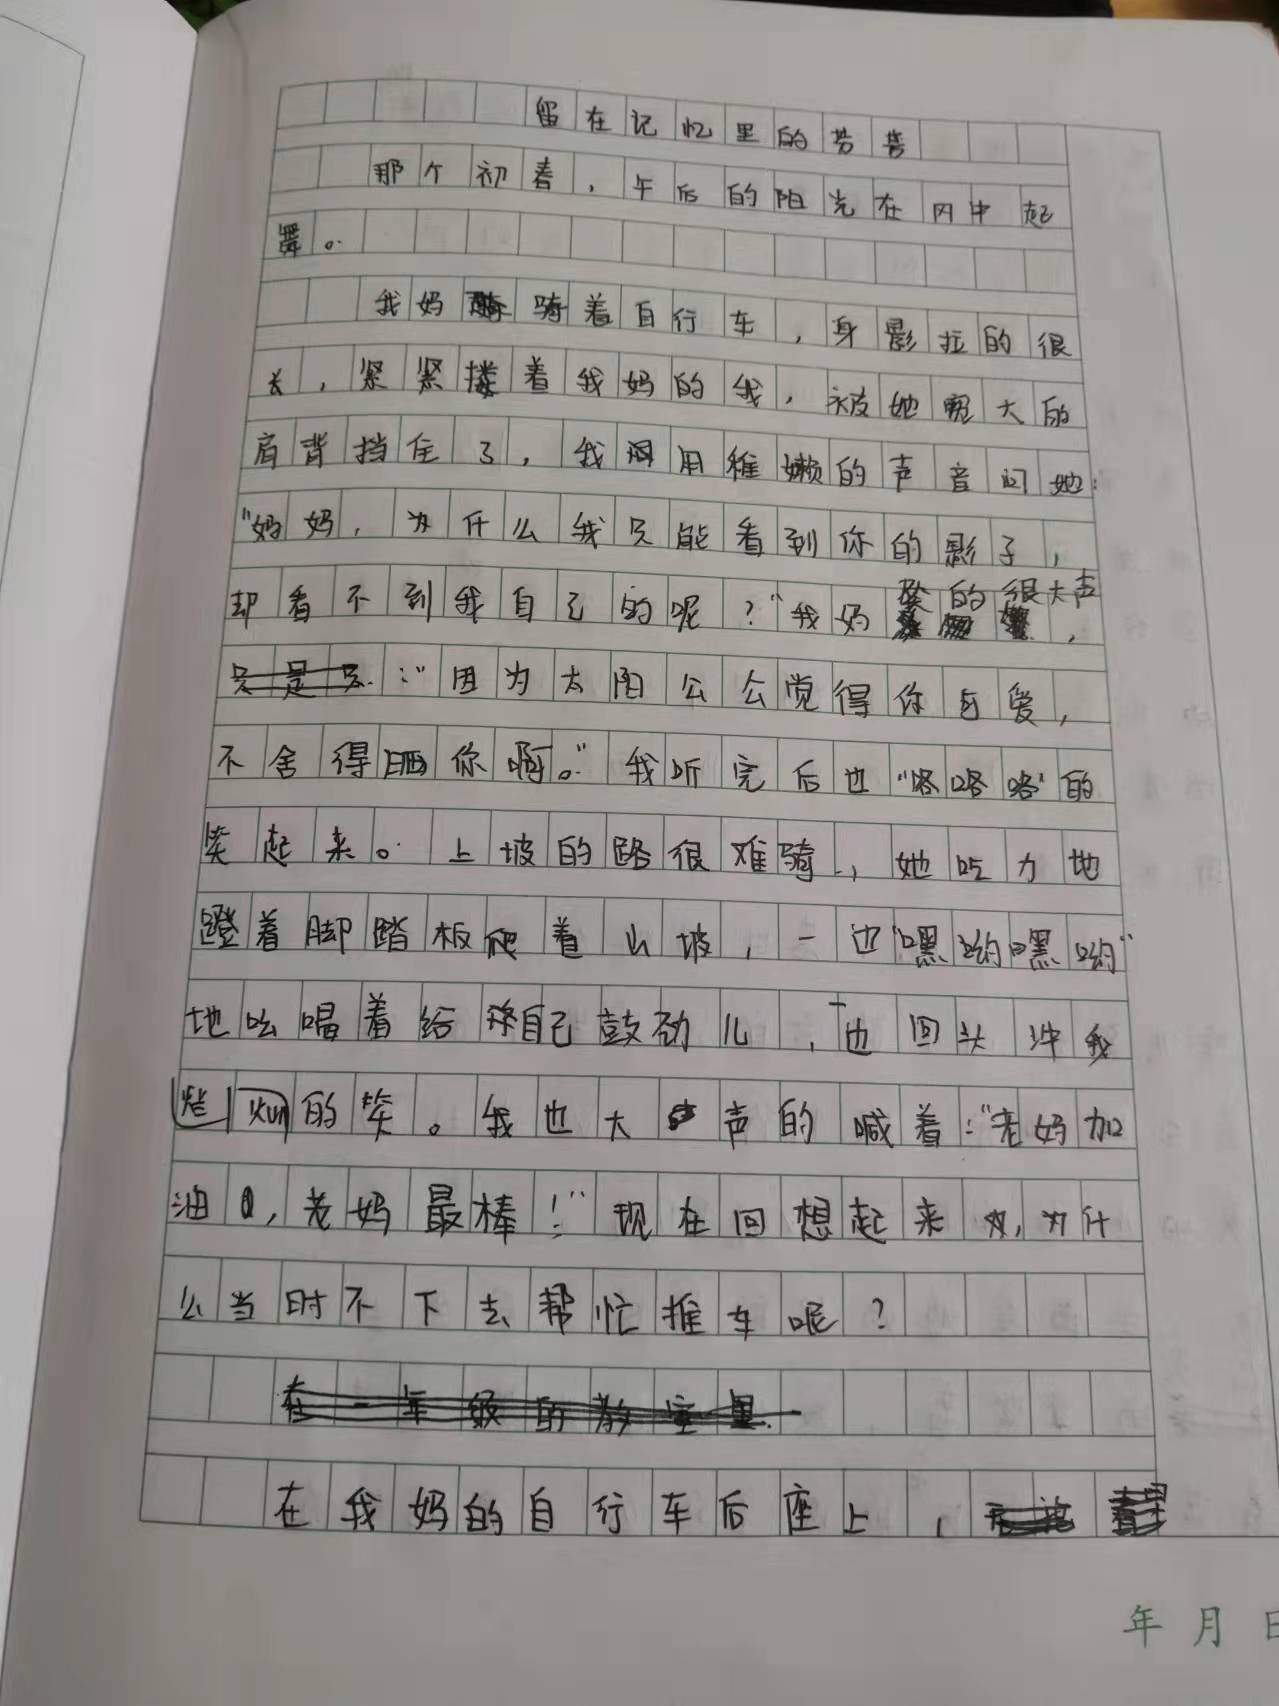 留在记忆里的芳香
那个初春，午后的阳光在风中起
舞。
我妈骑着自行车，身影拉的很
长，紧紧搂着我妈的我，被她宽大的
肩背挡住了，我用稚嫩的声音问她：
“妈妈，为什么我只能看到你的影子，
却看不到我自己的呢？“我妈 的很大声，
只是只：“因为太阳公公觉得你可爱，
不舍得晒你啊。”我听完后也“咯咯咯”的
笑起来。上坡的路很难骑，她吃力地
蹬着脚踏板爬着山坡，一边“嘿哟嘿哟”
地吆喝着给自己鼓劲儿，一边回头冲我
灿xun的笑。我也大声的喊着：“老妈加
油，老妈最棒！”现在回想起来，为什
么当时不下去帮忙推车呢？
在一年级的教室里
在我妈的自行车后座上，
年 月 日